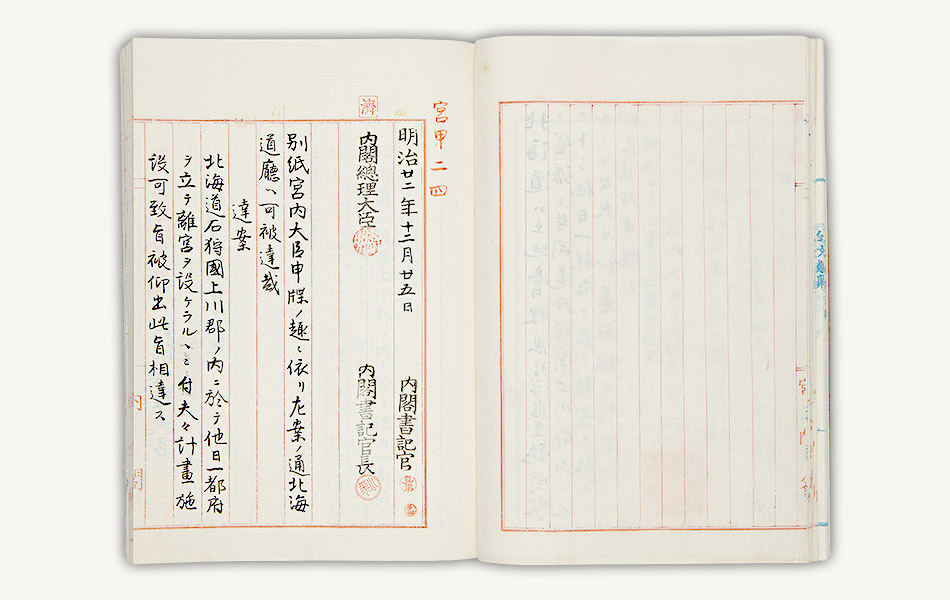 宮甲二四
明治廿二年十二月廿五日
内閣書記官
濟
内閣總理大臣
内閣書記官長
別紙宮内大臣申牒ノ趣ニ依リ左案ノ通北海
道廳ヘ可被達哉
達案
北海道石狩國上川郡ノ内ニ於テ他日一都府
ヲ立テ離宮ヲ設ケラルヽニ付夫々計畫施
設可致旨被仰出此旨相達ス